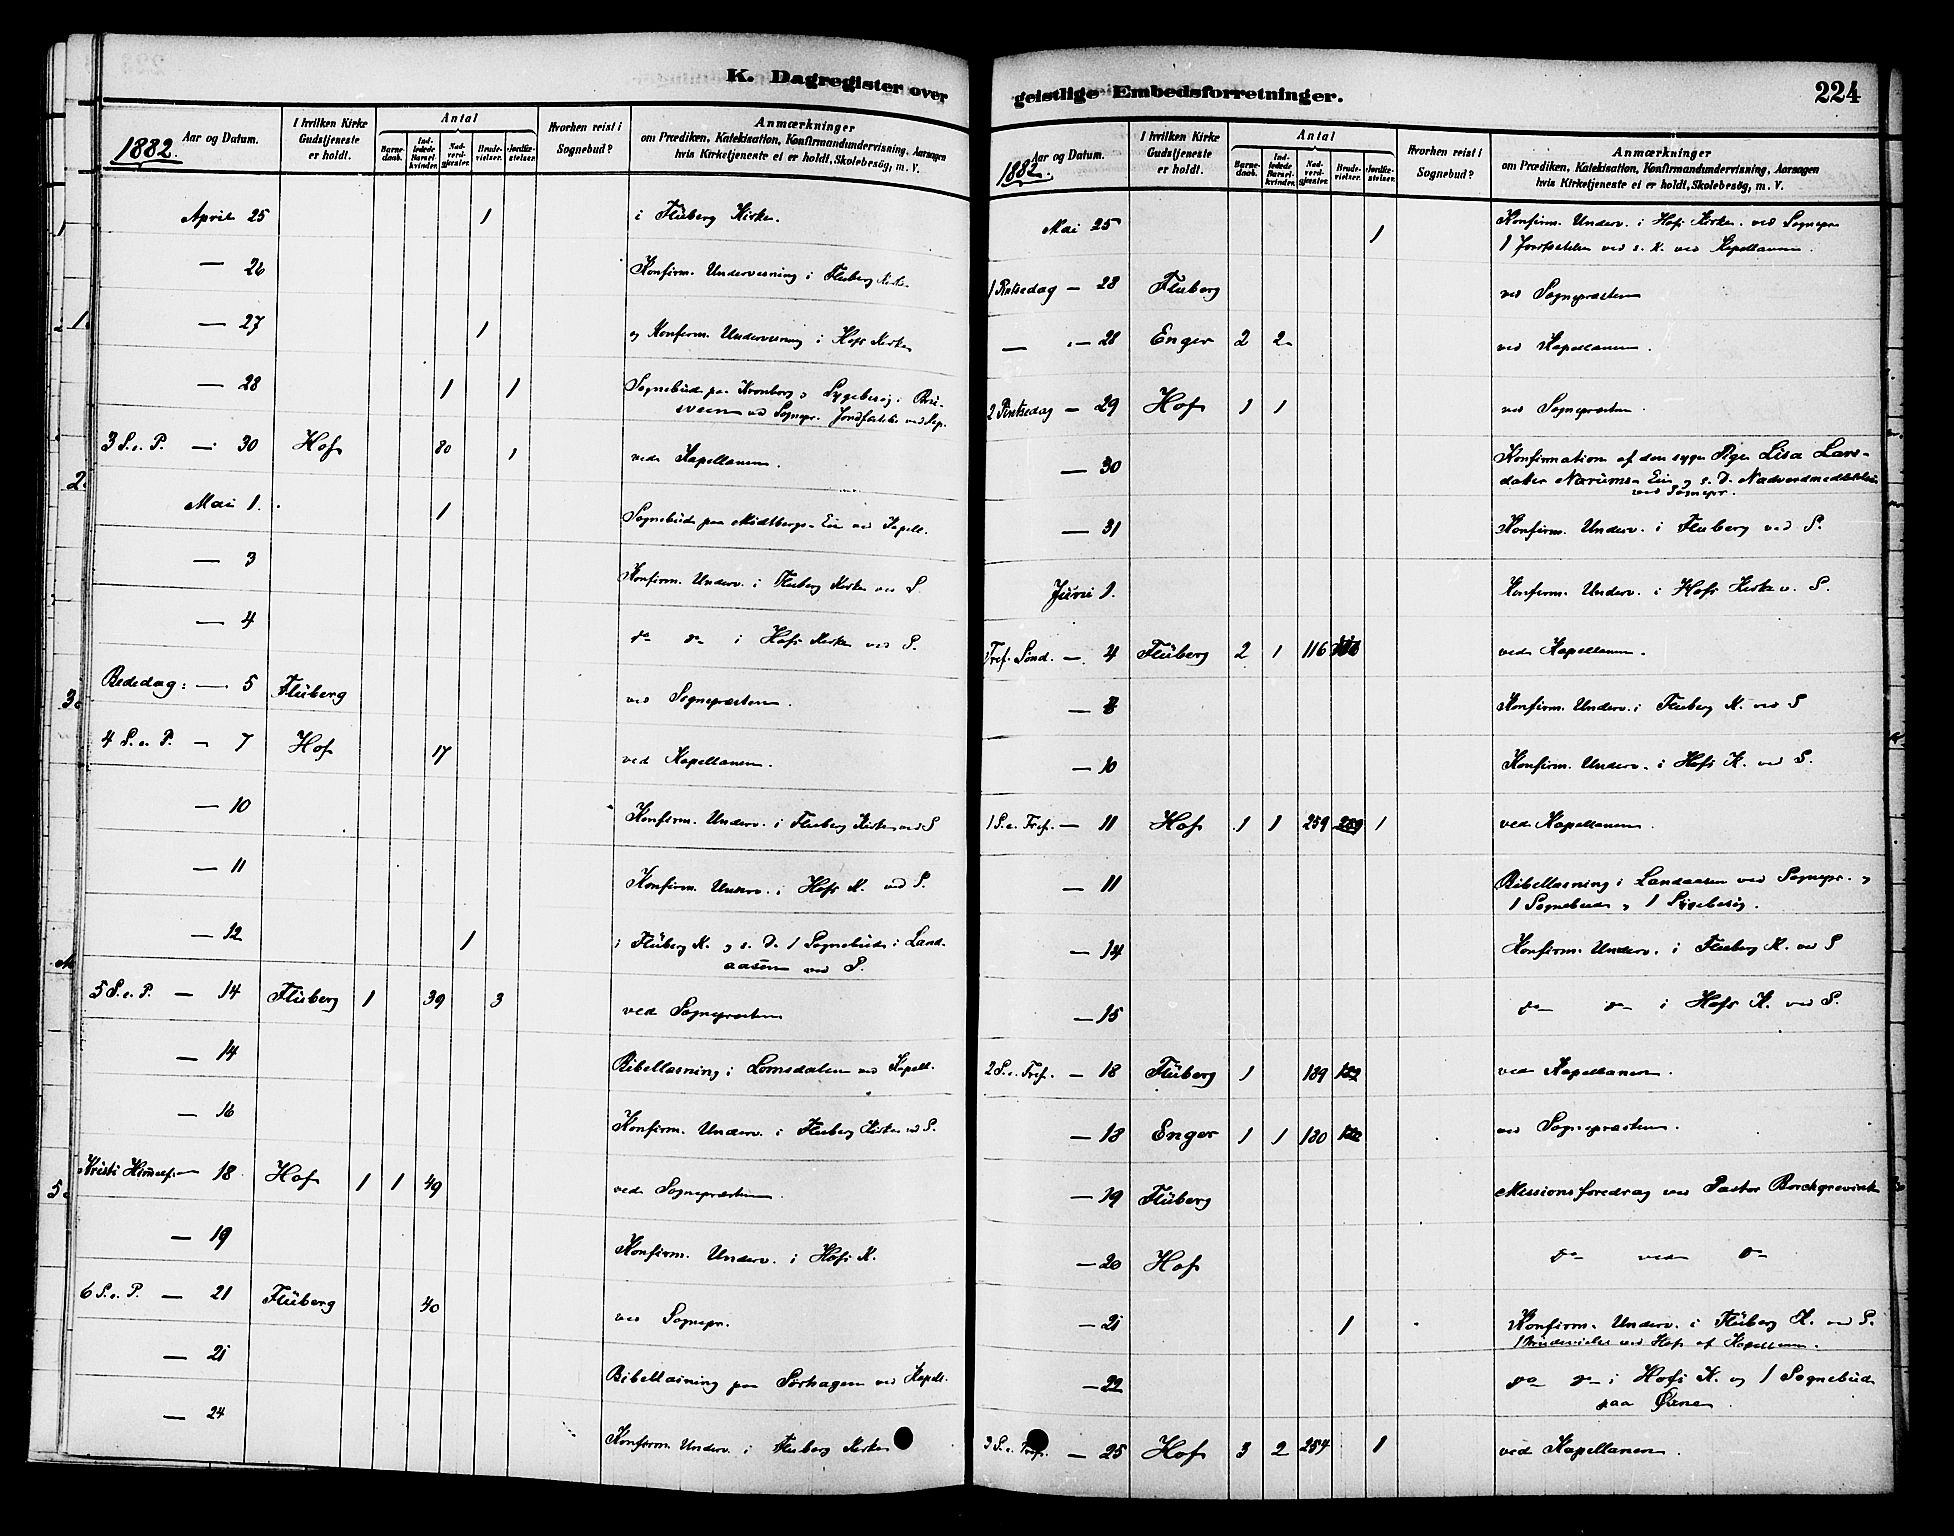 K. Dagregister over
1882.
Aar og Datum.
I hvilken Kirke Gudstjeneste er holdt.
Antal
Barne-daab.
Ind-ledede Barsel-kvinder.
Nad-verd-gjester.
Brude-vielser.
Jordfæ-stelser.
Hvorhen reist i Sognebud?
Anmærkninger
om Prædiken, Katekisation, Konfirmandundervisning, Aarsagen
hvis Kirketjeneste ei er holdt, Skolebesög, m. V.
April 25 1 i Fluberg Kirke.
— 26 Konfirm. Undervisning i Fluberg Kirke
— 27 1 og Konfirm. Undervisning i Hofs Kirke
— 28 1 1 Sognebud paa Kronborg og Sygebesög i
ved Sognepr. Jordfæstelse ved Kap.
3 S. e. P. — 30 Hof 80 1 ved Kapellanen.
Mai 1. 1 Sognebud paa Midtbergs-Eie ved Kapell.
— 3 Konfirm. Underv. i Fluberg Kirke ved S.
— 4 do do i Hofs Kirke ved S.
Bededag: — 5 Fluberg ved Sognepræsten.
4 S. e. P. — 7 Hof 17 ved Kapellanen.
— 10 Konfirm. Underv. i Fluberg Kirke ved S
— 11 Konfirm. Underv. i Hofs K. ved S.
— 12 1 i Fluberg K. og s. D. 1 Sognebud i Land-
aasen ved S.
5 S. e. P. — 14 Fluberg 1 39 3 ved Sognepræsten
— 14 Bibellæsning i Lomsdalen ved Kapell.
— 16 Konfirm. Underv. i Fluberg Kirke ved S.
Kristi Himmelf. — 18 Hof 1 1 49 ved Sognepræsten.
— 19 Konfirm. Underv. i Hofs K.
6 S. e. P. — 21 Fluberg 40 ved Sognepr.
— 21 Bibellæsning paa Sörhagen ved Kapell.
— 24 Konfirm. Underv. i Fluberg Kirke
geistlige Embedsforretninger.
224
1882.
Aar og Datum.
I hvilken Kirke Gudstjeneste er holdt.
Antal
Barne-daab.
Ind-ledede Barsel-kvinder.
Nad-verd-gjester.
Brude-vielser.
Jordfæ-stelser.
Hvorhen reist i Sognebud?
Anmærkninger
om Prædiken, Katekisation, Konfirmandundervisning, Aarsagen
hvis Kirketjeneste ei er holdt, Skolebesög, m. V.
Mai 25 1 Konfirm. Underv. i Hofs Kirke ved Sognepr.
1 Jordfæstelse ved s. K. ved Kapellanen.
1 Pintsedag — 28 Fluberg ved Sognepræsten
— — 28 Enger 2 2 ved Kapellanen.
2 Pintsedag — 29 Hof 1 1 ved Sognepræsten.
— 30 Konfirmation af den syge Pige Lisa Lars-
datter Narums-Eie og s. D. Nadverdmeddelelse
ved Sognepr.
— 31 Konfirm. Underv. i Fluberg ved S.
Juni 1. Konfirm. Underv. i Hofs Kirke v. S.
Tref. Sönd. — 4 Fluberg 2 1 116 ved Kapellanen.
— 8 Konfirm. Underv. i Fluberg K. ved S
— 10 Konfirm. Underv. i Hofs K. ved S.
1 S. e. Tref. — 11 Hof 1 1 259 259 1 ved Kapellanen.
— 11 Bibellæsning i Landaasen ved Sognepr. og
1 Sognebud og 1 Sygebesög.
— 14 Konfirm. Underv. i Fluberg K. ved S
— 15 do do i Hofs K. ved S.
2 S. e. Tref. — 18 Fluberg 1 189 ved Kapellanen.
— 18 Enger 1 1 130 ved Sognepræsten.
— 19 Fluberg Missionsforedrag ved Pastor Borchgrevink
— 20 Hof do ved do
— 21 1 Konfirm. Underv. i Fluberg K. ved S.
1 Brudevielse ved Hof af Kapellanen.
— 22 do do i Hofs K. og 1 Sognebud
paa
3 S. e. Tref. — 25 Hof 3 2 254 1 ved Kapellanen.